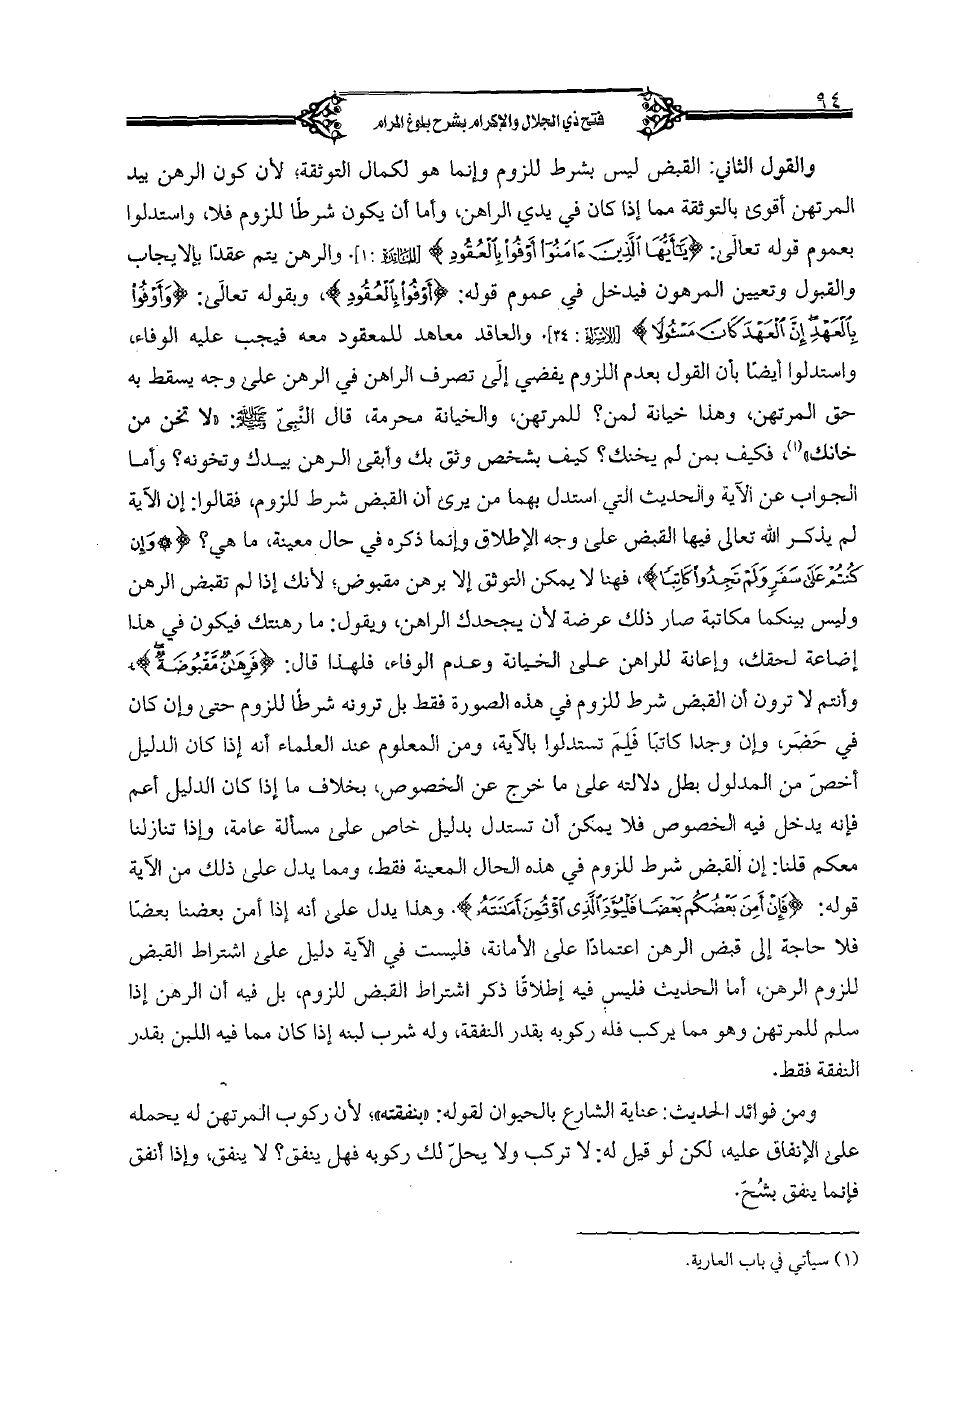 ٩٤
فتح ذي الجلال والإكرام بشرح بلوغ المرام
والقول الثاني: القبض ليس بشرط للزوم وإنما هو لكمال التوثقة؛ لأن كون الرهن بيد
المرتهن أقوى بالتوثقة مما إذا كان في يدي الراهن، وأما أن يكون شرطًا للزوم فلا، واستدلوا
بعموم قوله تعالى: ﴿يَٰٓأَيُّهَا ٱلَّذِينَ ءَامَنُوٓا۟ أَوْفُوا۟ بِٱلْعُقُودِ﴾ [المائدة: ١]. والرهن يتم عقدًا بالإيجاب
والقبول وتعيين المرهون فيدخل في عموم قوله: ﴿أَوْفُوا۟ بِٱلْعُقُودِ﴾، وبقوله تعالى: ﴿وَأَوْفُوا۟
بِٱلْعَهْدِ إِنَّ ٱلْعَهْدَ كَانَ مَسْـُٔولًا﴾ [الإسراء: ٣٤]. والعاقد معاهد للمعقود معه فيجب عليه الوفاء،
واستدلوا أيضًا بأن القول بعدم اللزوم يفضي إلى تصرف الراهن في الرهن على وجه يسقط به
حق المرتهن، وهذا خيانة لمن؟ للمرتهن، والخيانة محرمة، قال النَّبِيّ ﷺ: «لا تخن من
خانك»(١)، فكيف بمن لم يخنك؟ كيف بشخص وثق بك وأبقى الرهن بيدك وتخونه؟ وأما
الجواب عن الآية والحديث التي استدل بهما من يرى أن القبض شرط للزوم، فقالوا: إن الآية
لم يذكر الله تعالى فيها القبض على وجه الإطلاق وإنما ذكره في حال معينة، ما هي؟ ﴿۞ وَإِن
كُنتُمْ عَلَىٰ سَفَرٍ وَلَمْ تَجِدُوا۟ كَاتِبًا﴾، فهنا لا يمكن التوثق إلا برهن مقبوض؛ لأنك إذا لم تقبض الرهن
وليس بينكما مكاتبة صار ذلك عرضة لأن يجحدك الراهن، ويقول: ما رهنتك فيكون في هذا
إضاعة لحقك، وإعانة للراهن على الخيانة وعدم الوفاء، فلهذا قال: ﴿فَرِهَٰنٌ مَّقْبُوضَةٌ﴾،
وأنتم لا ترون أن القبض شرط للزوم في هذه الصورة فقط بل ترونه شرطًا للزوم حتى وإن كان
في حَضَر، وإن وجدا كاتبًا فَلِمَ تستدلوا بالآية، ومن المعلوم عند العلماء أنه إذا كان الدليل
أخصّ من المدلول بطل دلالته على ما خرج عن الخصوص، بخلاف ما إذا كان الدليل أعم
فإنه يدخل فيه الخصوص فلا يمكن أن تستدل بدليل خاص على مسألة عامة، وإذا تنازلنا
معكم قلنا: إن القبض شرط للزوم في هذه الحال المعينة فقط، ومما يدل على ذلك من الآية
قوله: ﴿فَإِنْ أَمِنَ بَعْضُكُم بَعْضًا فَلْيُؤَدِّ ٱلَّذِى ٱؤْتُمِنَ أَمَٰنَتَهُۥ﴾. وهذا يدل على أنه إذا أمن بعضنا بعضًا
فلا حاجة إلى قبض الرهن اعتمادًا على الأمانة، فليست في الآية دليل على اشتراط القبض
للزوم الرهن، أما الحديث فليس فيه إطلاقًا ذكر اشتراط القبض للزوم، بل فيه أن الرهن إذا
سلم للمرتهن وهو مما يركب فله ركوبه بقدر النفقة، وله شرب لبنه إذا كان مما فيه اللبن بقدر
النفقة فقط.
ومن فوائد الحديث: عناية الشارع بالحيوان لقوله: «بنفقته»؛ لأن ركوب المرتهن له يحمله
على الإنفاق عليه، لكن لو قيل له: لا تركب ولا يحلّ لك ركوبه فهل ينفق؟ لا ينفق، وإذا أنفق
فإنما ينفق بشُحّ.
(١) سيأتي في باب العارية.